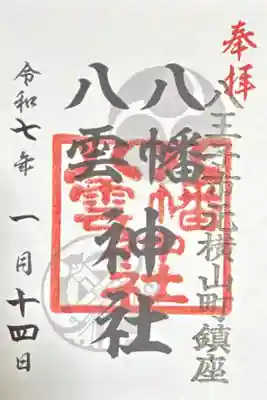 奉拝
八王子市元横山町鎮座
八幡
八雲
神社
令和七年 一月十四日